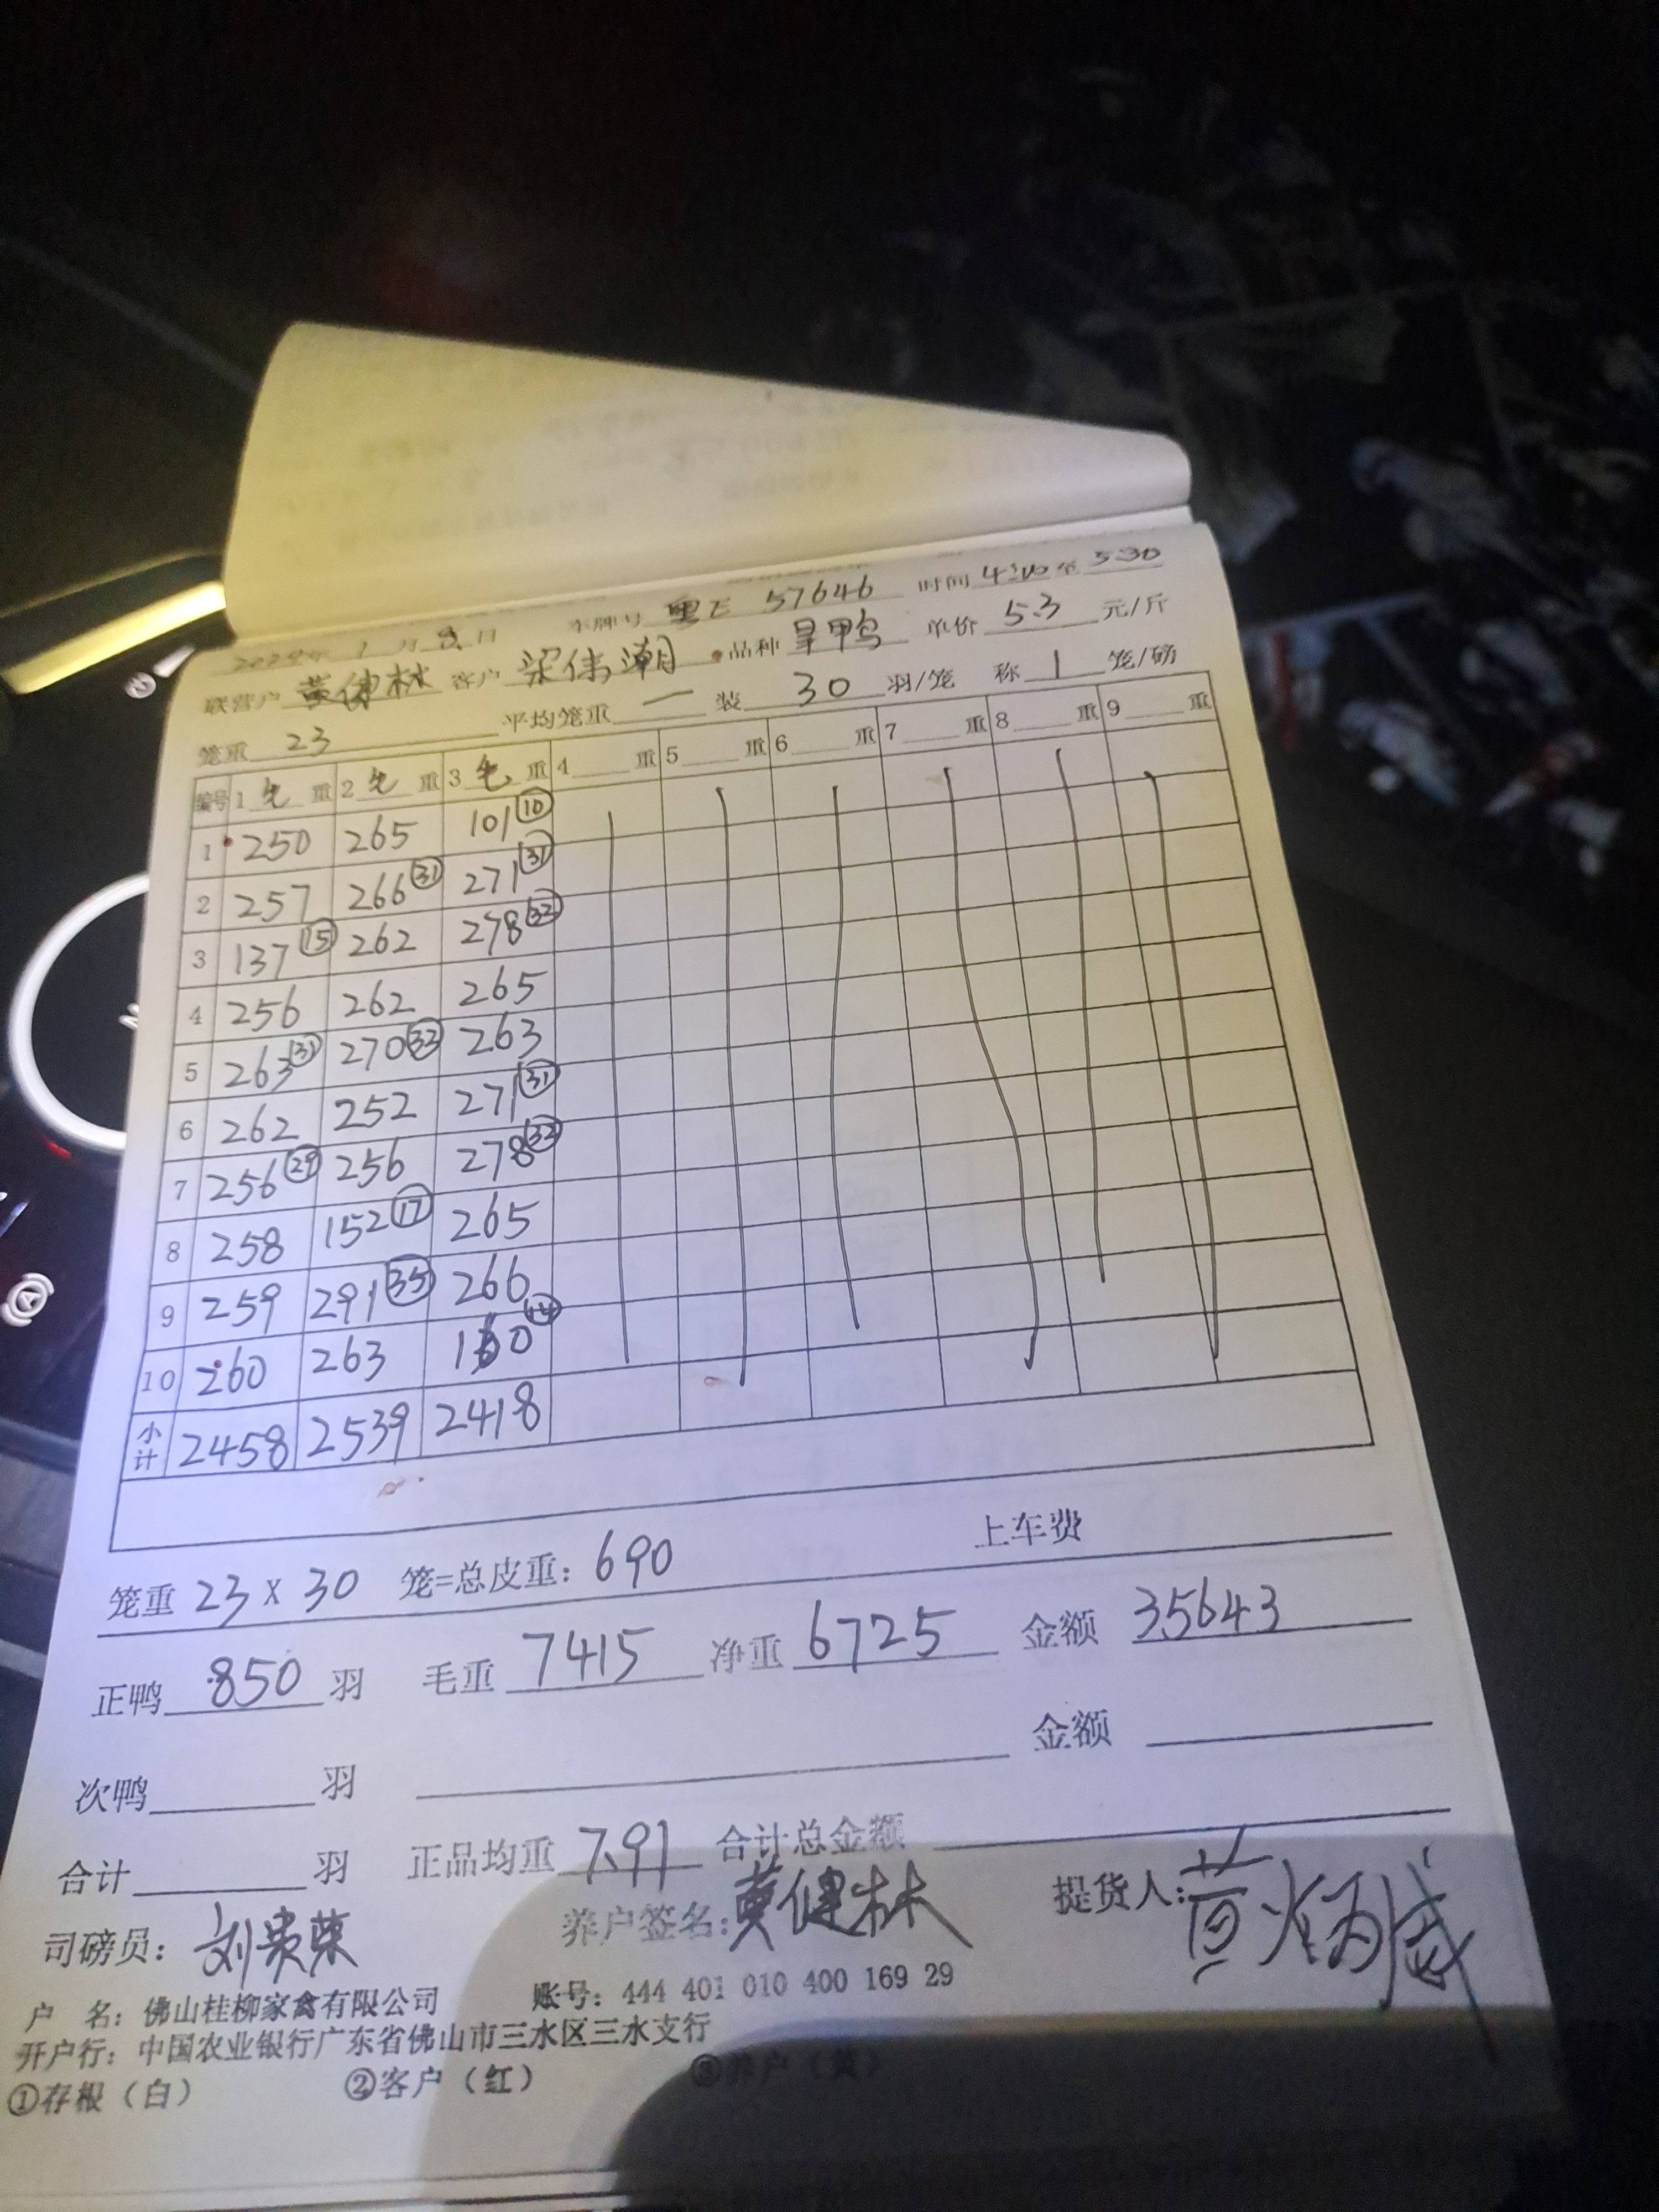 1月8日 车牌号 粤E 57646 时间 4:10 至 5:30
联营户 黄健林 客户 梁伟潮 品种 旱鸭 单价 5.3 元/斤
笼重 23 平均笼重 一 装 30 羽/笼 称 1 笼/磅
编号 1 毛 重 2 毛 重 3 毛 重 4 重 5 重 6 重 7 重 8 重 9 重
1 250 265 101 ⑩
2 257 266 ㉛ 271 ㉛
3 137 ⑮ 262 278 ㉜
4 256 262 265
5 263 ㉛ 270 ㉜ 263
6 262 252 271 ㉛
7 256 ㉙ 256 278 ㉜
8 258 152 ⑰ 265
9 259 291 ㉟ 266
10 260 263 160 ⑭
小计 2458 2539 2418
笼重 23 x 30 笼=总皮重: 690 上车费
正鸭 850 羽 毛重 7415 净重 6725 金额 35643
次鸭 羽 金额
合计 羽 正品均重 7.91 合计总金额
司磅员: 刘贵荣 养户签名: 黄健林 提货人: 黄炳成
户 名: 佛山桂柳家禽有限公司 账号: 444 401 010 400 169 29
开户行: 中国农业银行广东省佛山市三水区三水支行
①存根（白） ②客户（红） ③养户（黄）